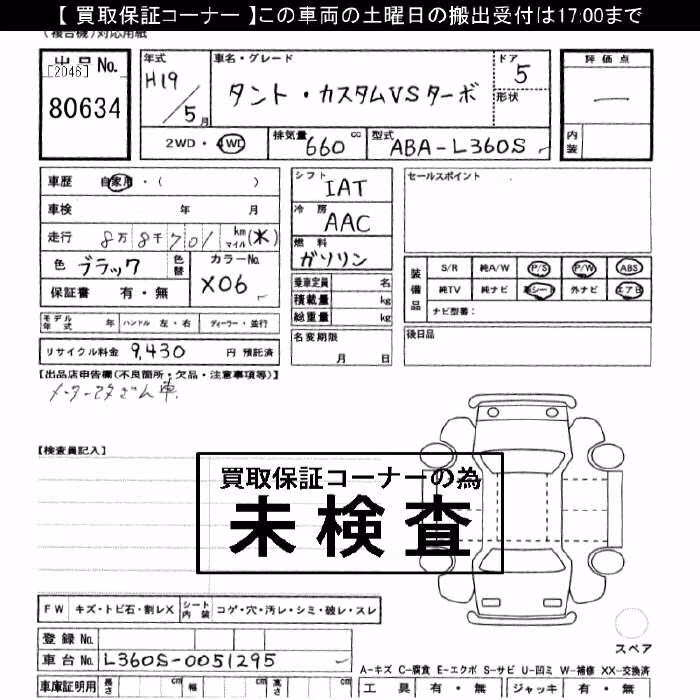 【 買取保証コーナー 】この車両の土曜日の搬出受付は17:00まで
(複合機)対応用紙
出品No.
[2046]
80634
年式
H19
/5月
車名・グレード
タント・カスタムVSターボ
ドア
5
形状
2WD・4WD
排気量
660 cc
型式
ABA-L360S
評価点
内装
車歴 自家用・( )
車検 年 月
走行 8万8千701 km マイル (*)
色 ブラック
色替
カラーNo.
X06
保証書 有・無
モデル年式 年 ハンドル 左・右 ディーラー・並行
リサイクル料金 9,430 円 預託済
シフト
IAT
冷房
AAC
燃料
ガソリン
乗車定員 名
積載量 kg
総重量 kg
名変期限
月 日
セールスポイント
装備品
S/R 純A/W P/S P/W ABS
純TV 純ナビ 革シート 外ナビ エアB
ナビ型番:
後日品
【出品店申告欄(不良箇所・欠品・注意事項等)】
【検査員記入】
買取保証コーナーの為
未検査
FW キズ・トビ石・割レX
シート内装 コゲ・穴・汚レ・シミ・破レ・スレ
登録No.
車台No. L360S-0051295
車庫証明用 長さ cm 幅 cm 高さ cm
スペア
A-キズ C-腐食 E-エクボ S-サビ U-凹ミ W-補修 XX-交換済
工具 有・無 ジャッキ 有・無